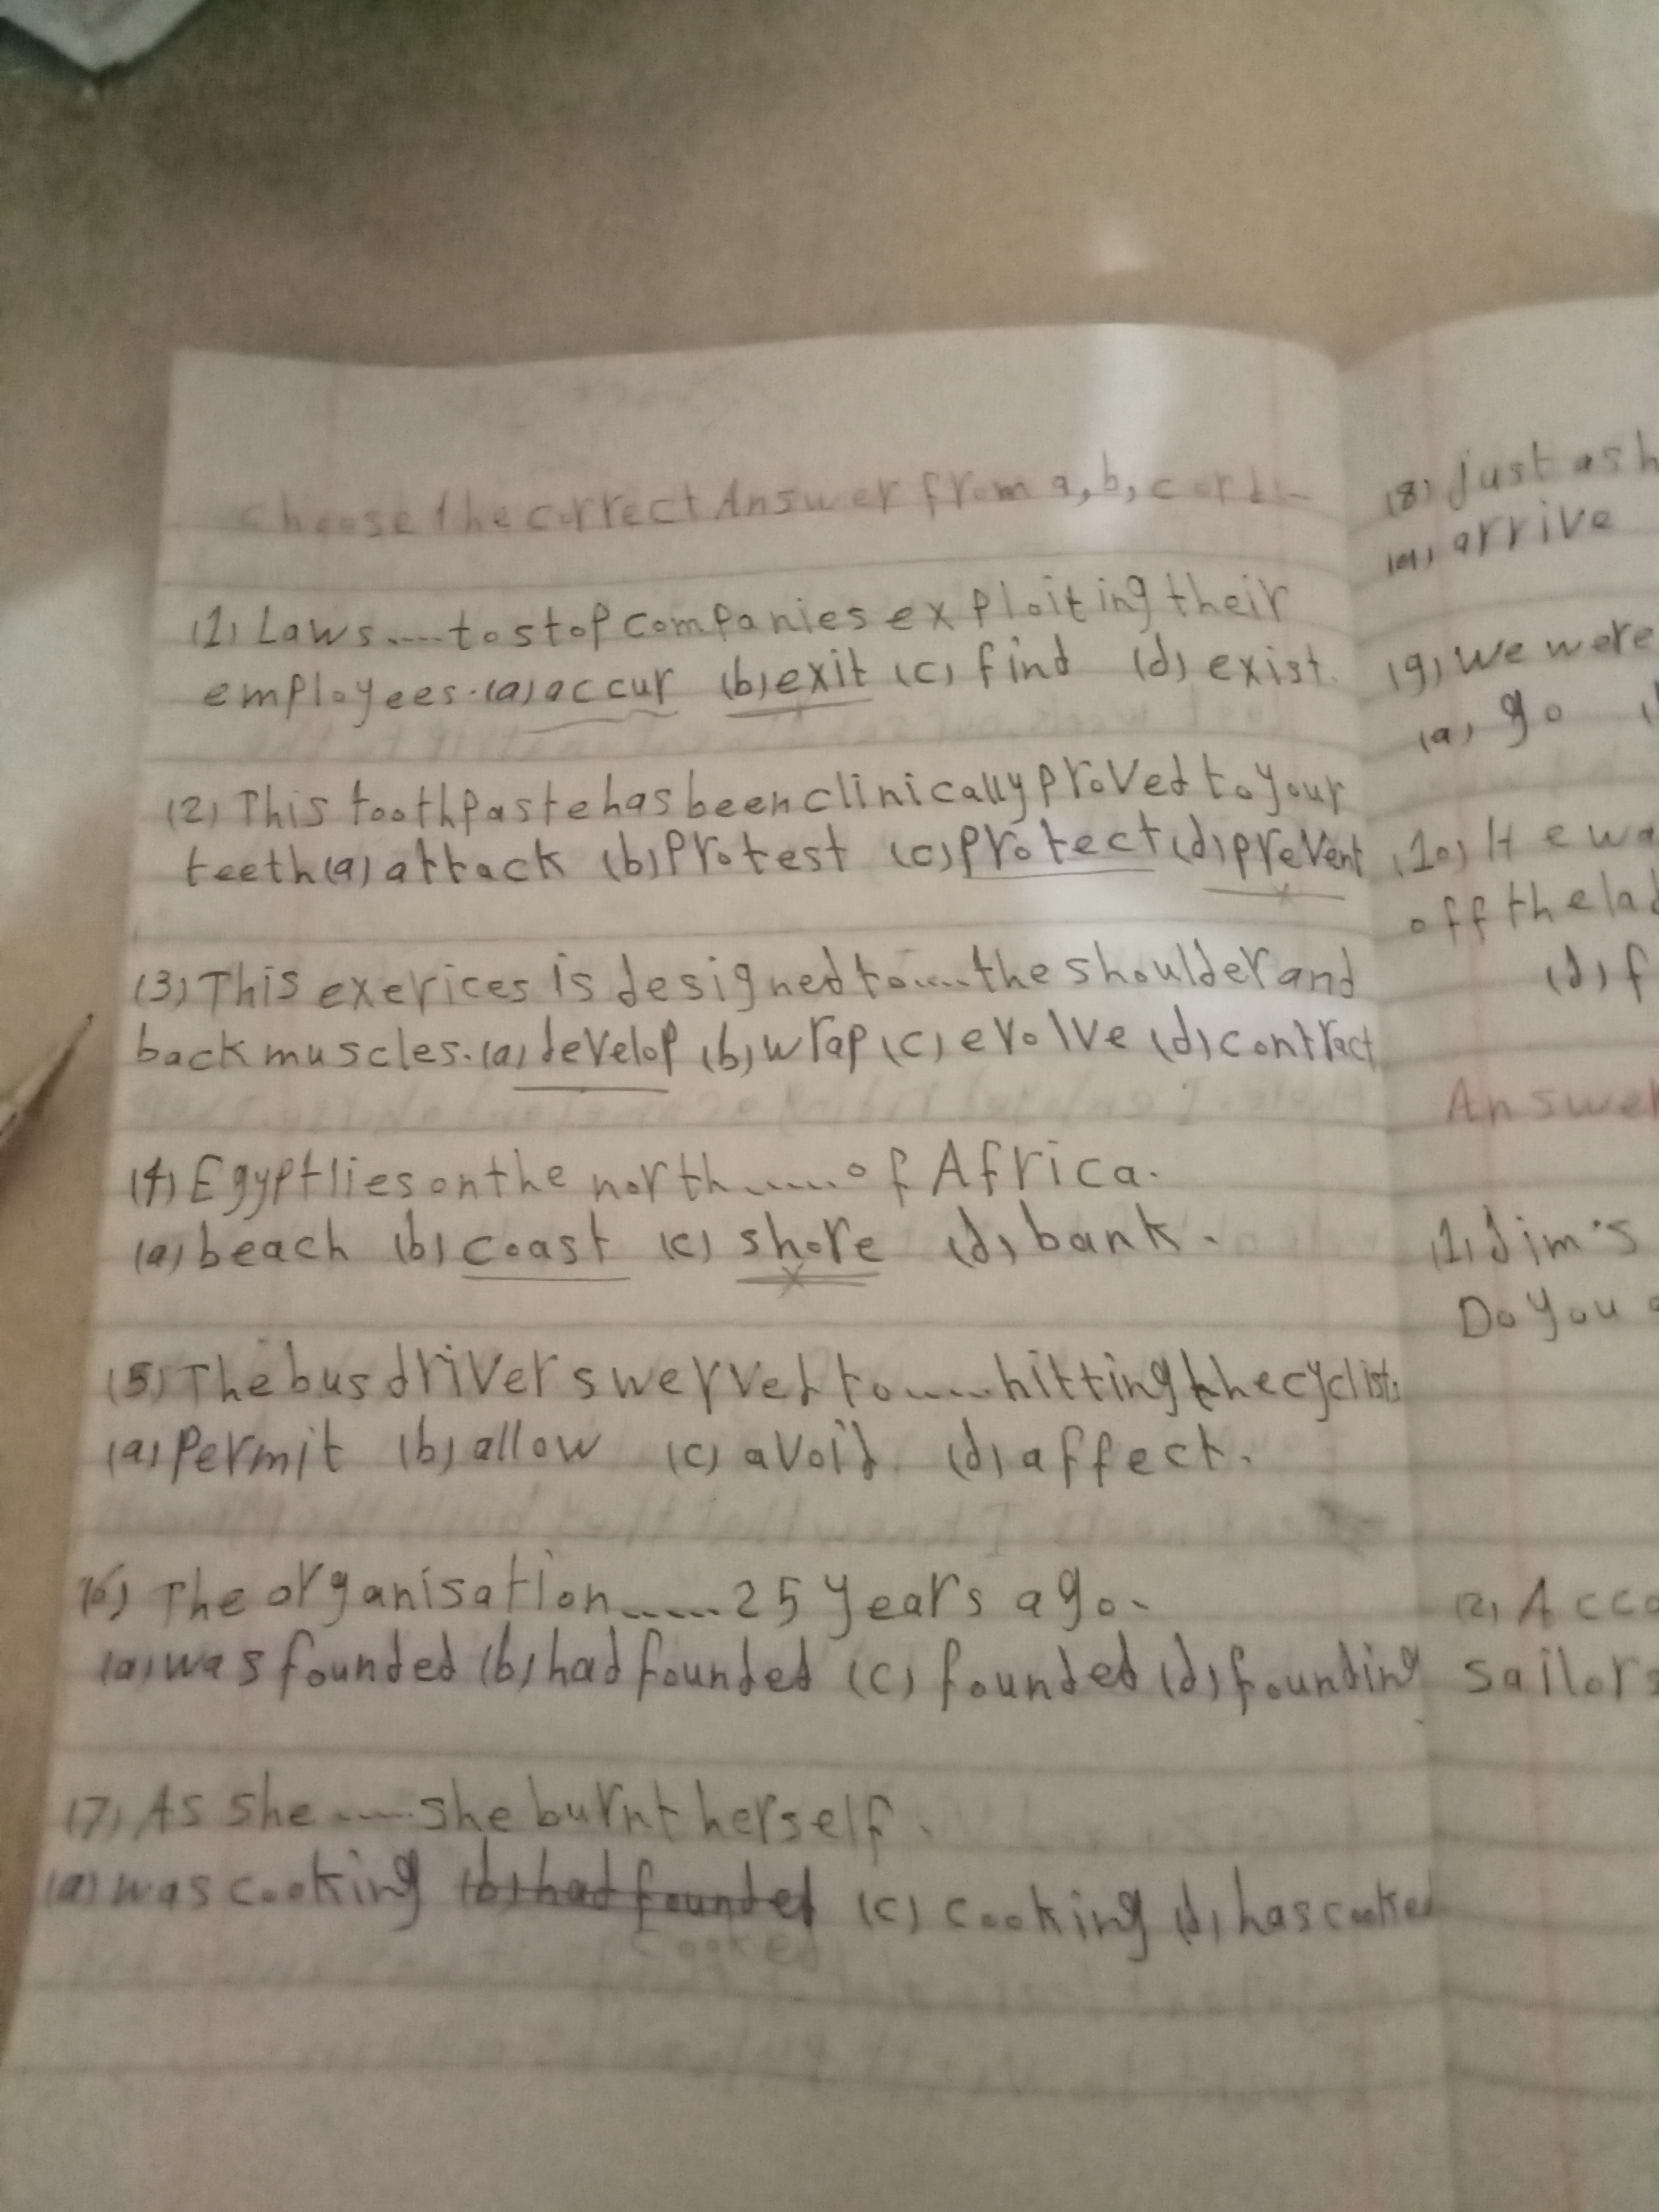 choose the correct Answer from a, b, c or d:-
(1) Laws.....to stop companies exploiting their
employees. (a) accur (b) exit (c) find (d) exist.
(2) This toothpaste has been clinically proved to your
teeth (a) attack (b) Protest (c) protect (d) prevent
(3) This exerices is designed to.....the shoulder and
back muscles. (a) develop (b) wrap (c) evolve (d) contract
(4) Egypt lies on the north.....of Africa.
(a) beach (b) coast (c) shore (d) bank.
(5) The bus driver swerved to.....hitting the cyclist.
(a) Permit (b) allow (c) avoid (d) affect.
(6) The organisation.....25 years ago.
(a) was founded (b) had founded (c) founded (d) founding
(7) As she.....she burnt herself.
(a) was cooking (b) had founded (c) cooking (d) has cooked
cooked
(8) just as h
(a) arrive
(9) We were
(a) go
(10) He wa
off the lad
(d) f
Answer
(1) Jim's
Do you
(2) Acco
sailors